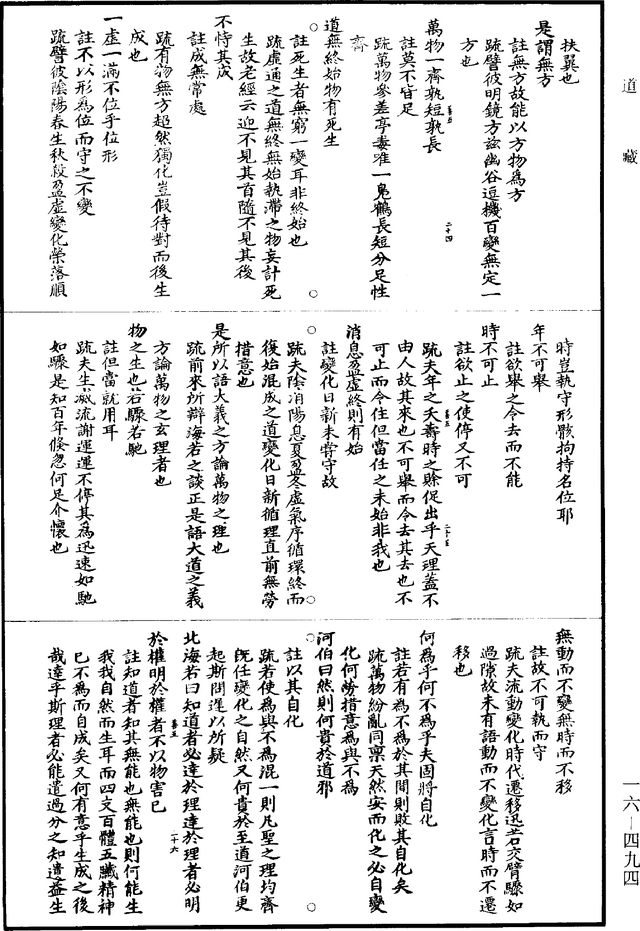 道藏
扶翼也
是謂無方
註無方故能以万物為方
䟽譬彼明鏡方茲幽谷逗機百變無定一
方也
萬物一齊孰短孰長
註莫不皆足
䟽萬物參差亭毒唯一鳧鶴長短分足性
齊
道無終始物有死生
註死生者無窮一變耳非終始也
䟽虛通之道無終無始執滯之物妄計死
生故老經云迎不見其首隨不見其後
不恃其成
註成無常處
䟽有物無方超然獨化豈假待對而後生
成也
一虛一滿不位乎位形
註不以形為位而守之不變
䟽譬彼陰陽春生秋殺盈虛變化榮落順
時豈執守形骸拘持名位耶
年不可舉
註欲舉之令去而不能
時不可止
註欲止之使停又不可
䟽夫年之夭壽時之賒促出乎天理蓋不
由人故其來也不可舉而令去其去也不
可止而令住但當任之未始非我也
消息盈虛終則有始
註變化日新未嘗守故
䟽夫陰消陽息夏盈冬虛氣序循環終而
復始混成之道變化日新循理直前無勞
措意也
是所以語大義之方論萬物之理也
䟽前來所辯海若之談正是語大道之義
方論萬物之玄理者也
物之生也若驟若馳
註但當就用耳
䟽夫生滅流謝運運不停其為迅速如馳
如驟是知百年倏忽何足介懷也
無動而不變無時而不移
註故不可執而守
䟽夫流動變化時代遷移迅若交臂驟如
過隙故未有語動而不變化言時而不遷
移也
何為乎何不為乎夫固將自化
註若有為不為於其間則敗其自化矣
䟽萬物紛亂同稟天然安而化之必自變
化何勞措意為與不為
河伯曰然則何貴於道邪
註以其自化
䟽若使為與不為混一則凡聖之理均齊
既任變化之自然又何貴於至道河伯更
起斯問遲以所疑
北海若曰知道者必達於理達於理者必明
於權明於權者不以物害己
註知道者知其無能也無能也則何能生
我我自然而生耳而四支百體五臟精神
已不為而自成矣又何有意乎生成之後
哉達乎斯理者必能遣過分之知遺益生
一六—四九四